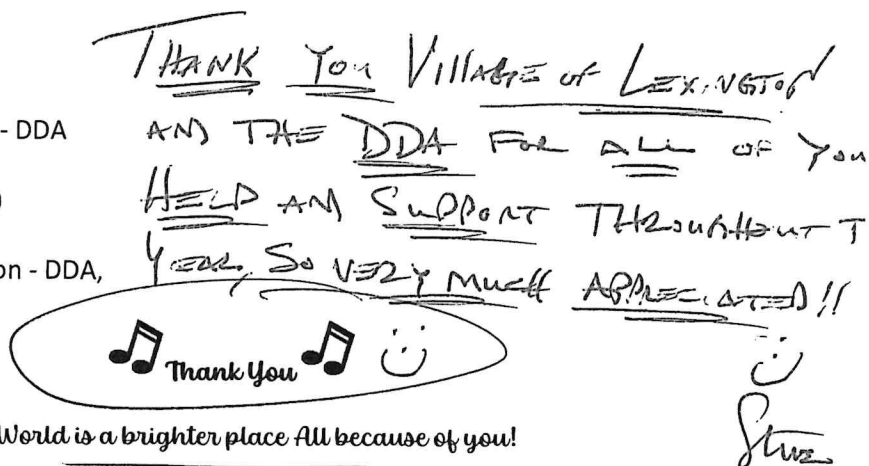 THANK YOU VILLAGE OF LEXINGTON
- DDA AND THE DDA FOR ALL OF YOU
HELP AND SUPPORT THROUGHOUT T
on - DDA, YEAR, SO VERY MUCH APPRECIATED!!
Thank You
World is a brighter place All because of you!
Steve